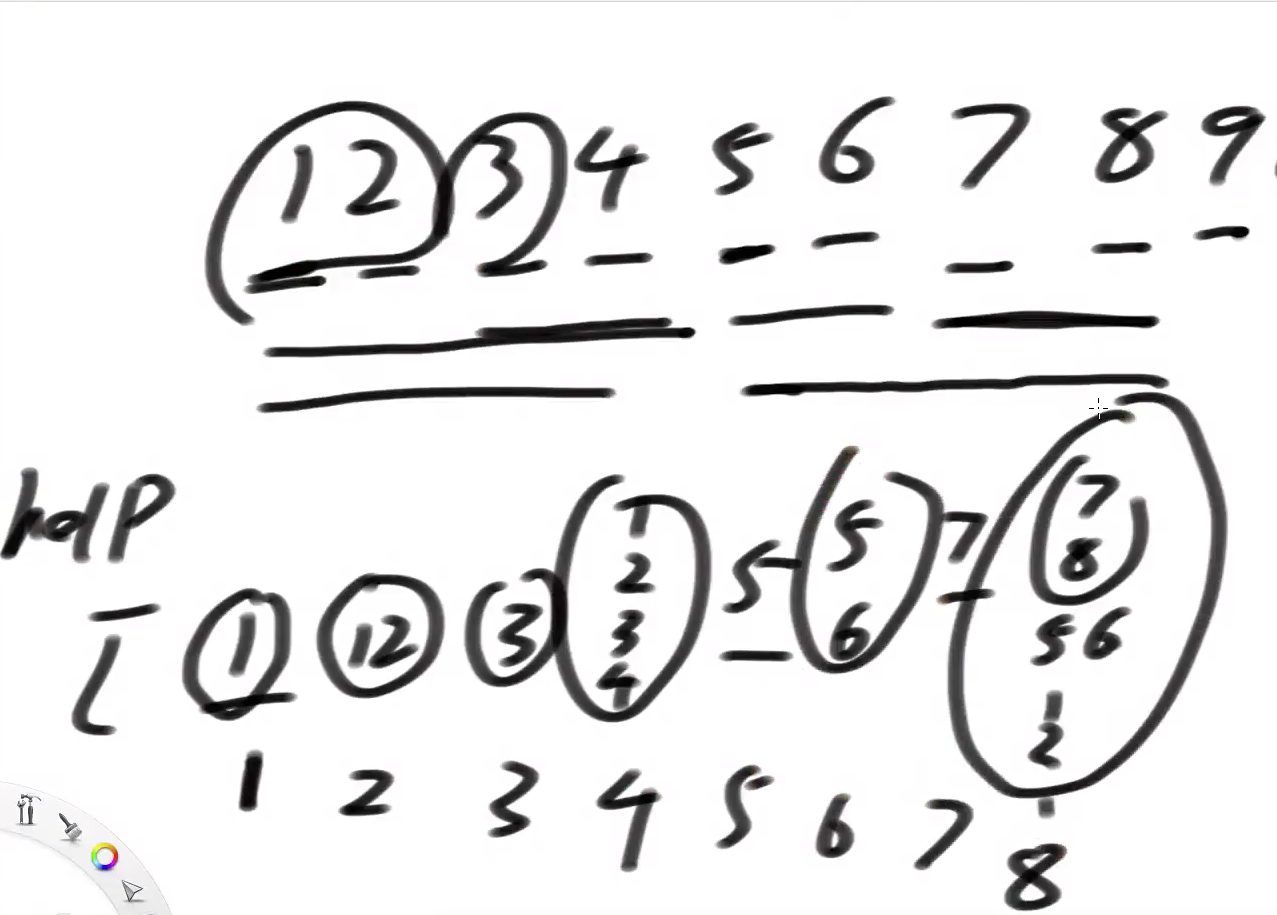 1 2 3 4 5 6 7 8 9
help
1 12 3 1 2 3 4 5 5 6 7 7 8 5 6 1 2
1 2 3 4 5 6 7 8